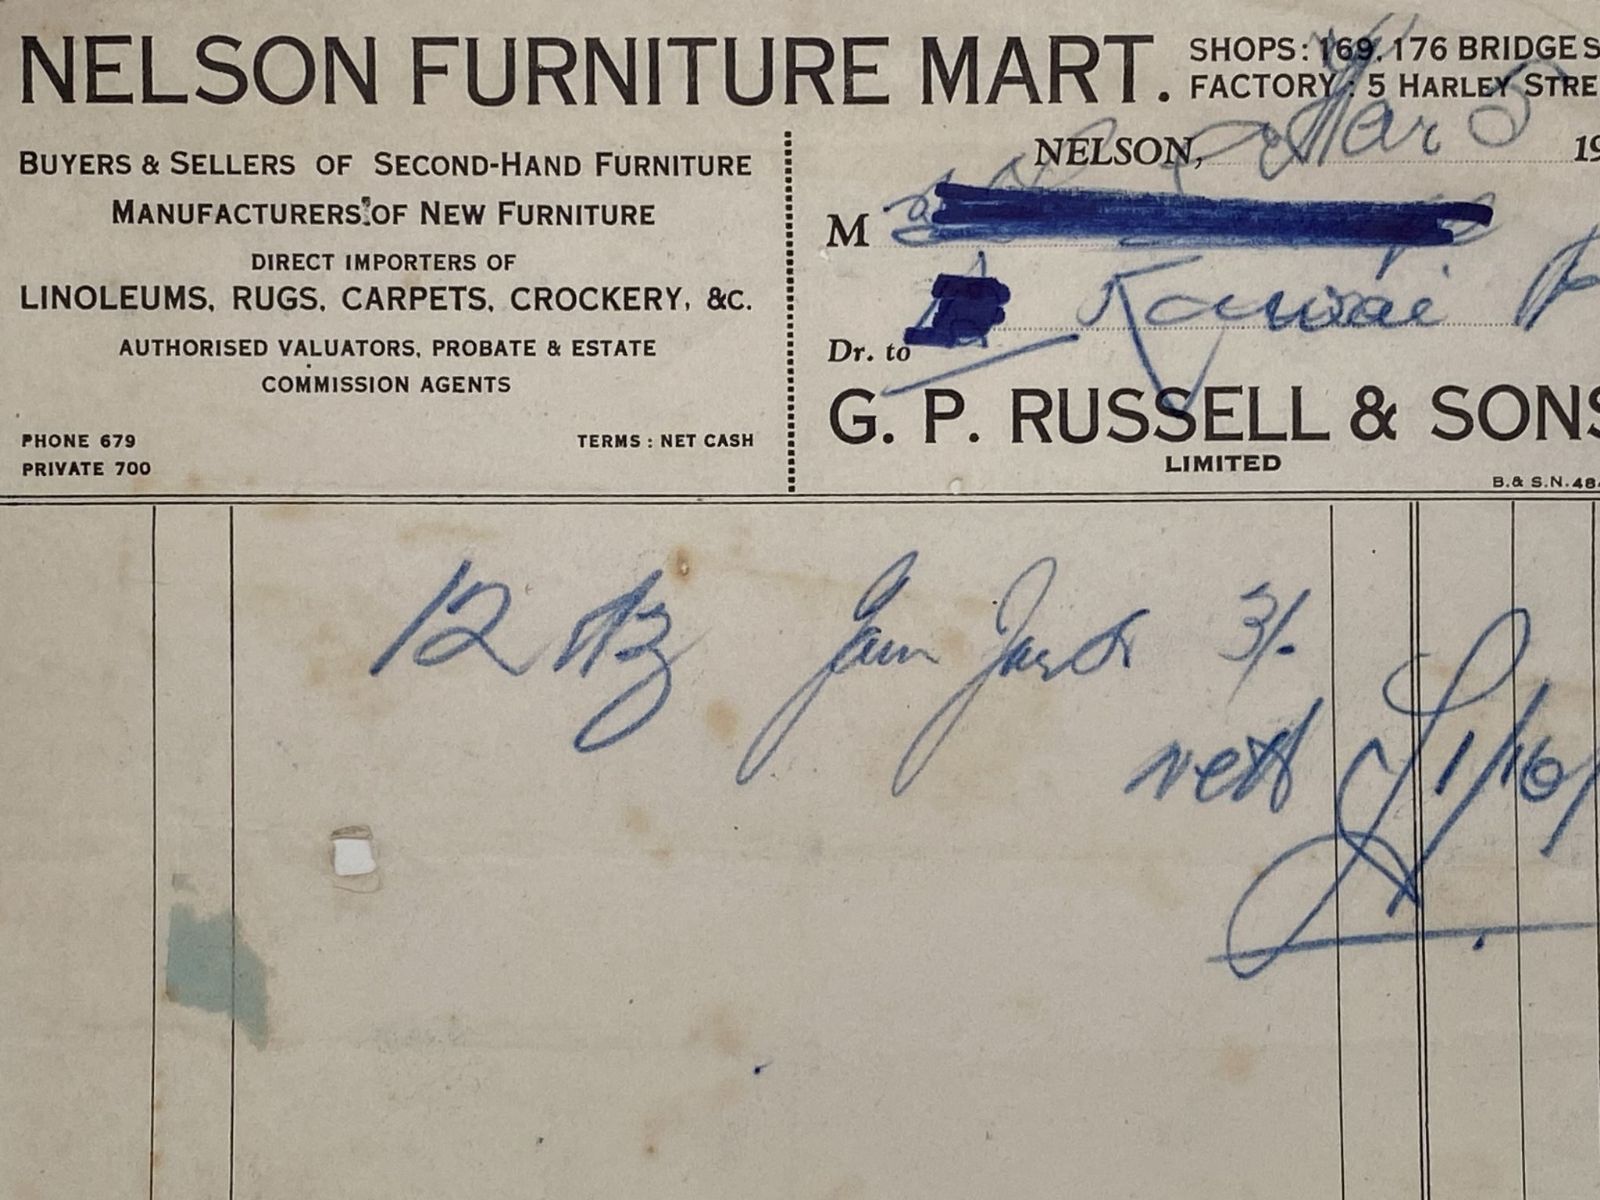 NELSON FURNITURE MART.
SHOPS: 169, 176 BRIDGE S
FACTORY: 5 HARLEY STRE
BUYERS & SELLERS OF SECOND-HAND FURNITURE
MANUFACTURERS OF NEW FURNITURE
DIRECT IMPORTERS OF
LINOLEUMS, RUGS, CARPETS, CROCKERY, &C.
AUTHORISED VALUATORS, PROBATE & ESTATE
COMMISSION AGENTS
PHONE 679
PRIVATE 700
TERMS: NET CASH
NELSON, Mar 5 19
M
Kawai
Dr. to
G. P. RUSSELL & SONS
LIMITED
B. & S.N. 48
12 Jam Jars 3/-
nett £1/16/